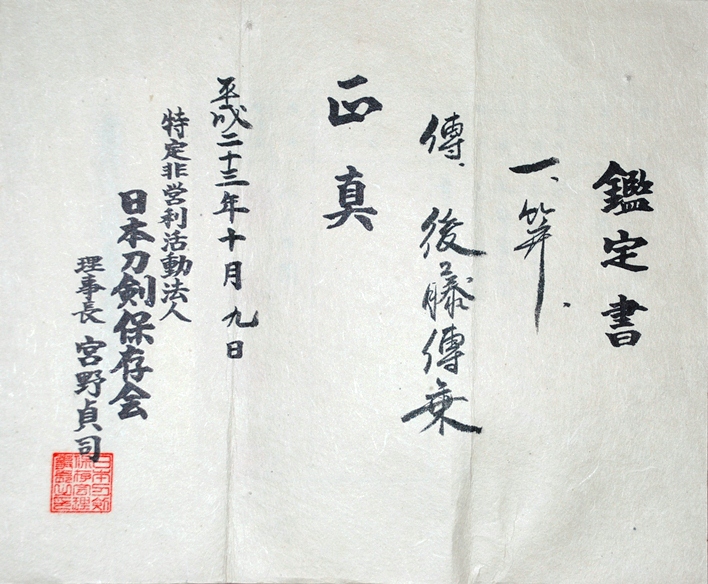 鑑定書
一、笄
傳、後藤傳乗
正真
平成二十三年十月九日
特定非営利活動法人
日本刀剣保存会
理事長 宮野貞司